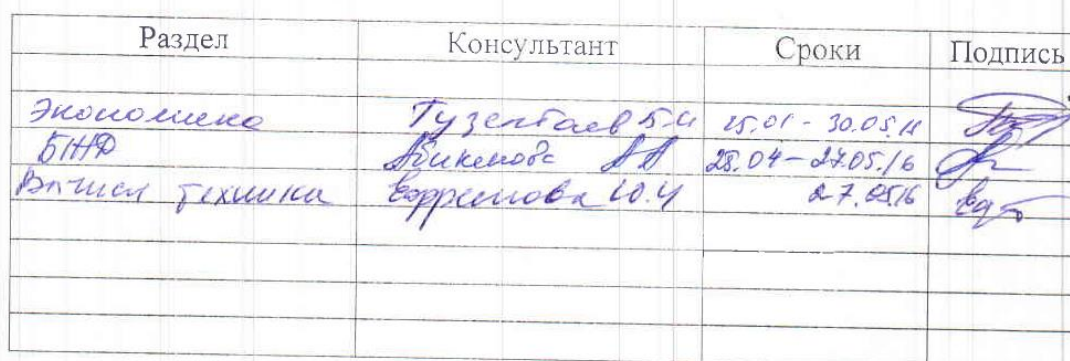 Раздел Консультант Сроки Подпись
Экономика Тузелбаев Б.И 25.01 - 30.05.16
БЖД Абикенова АА 28.04 - 27.05.16
Вычисл техника Ефремова Ю.И 27.0516